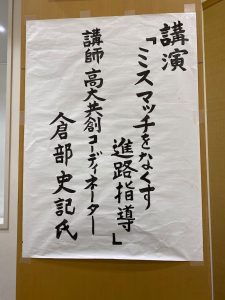 講演
「ミスマッチをなくす
進路指導」
講師 高大共創コーディネーター
倉部史記氏